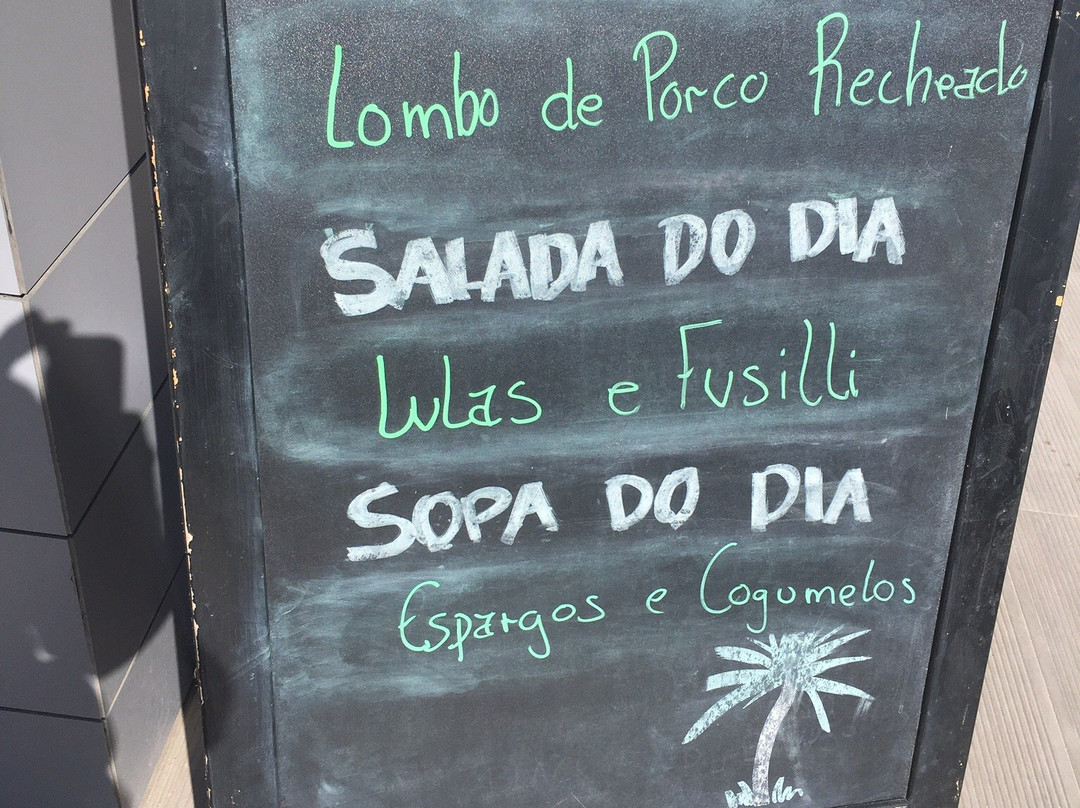 Lombo de Porco Recheado
SALADA DO DIA
Lulas e Fusilli
SOPA DO DIA
Espargos e Cogumelos